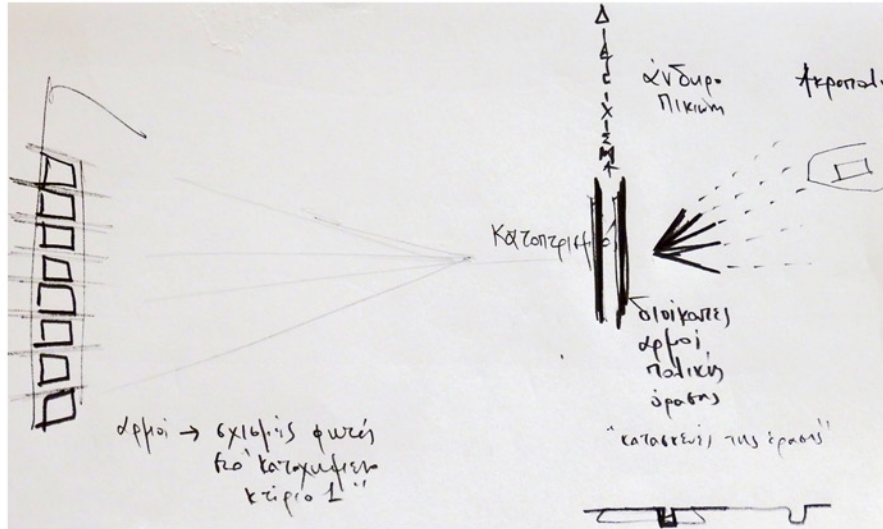 ΔΙΑΣΧΙΣΗ
άνδηρο
Πικιώνη
Ακροπολ
Κατοπτρισμός
αρμοί
οπτικής
όρασης
"κατασκευές της όρασης"
αρμοί → σχισμές φωτός
στο "κατοχυρωμένο
κτίριο 1"